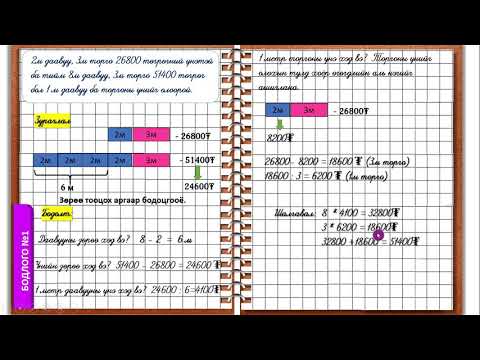 2м даавуу, 3м торго 26800 төгрөгийн үнэтэй
ба тийм 8м даавуу, 3м торго 51400 төгрөг
бол 1м даавуу ба торгоны үнийг олоорой.
Зураглал
2м 3м - 26800₮
2м 2м 2м 2м 3м - 51400₮
6 м
24600₮
Зөрөө тооцох аргаар бодоцгооё.
Бодолт:
Даавууны зөрөө хэд вэ? 8 - 2 = 6м
Үнийн зөрөө хэд вэ? 51400 - 26800 = 24600₮
1 метр даавууны үнэ хэд вэ? 24600 : 6=4100₮
БОДЛОГО №1
1 метр торгоны үнэ хэд вэ? Торгоны үнийг
олохын тулд хоёр өгөгдлийн аль нэгийг
ашиглана.
2м 3м - 26800₮
8200₮
26800- 8200 = 18600₮ (3м торго)
18600 : 3 = 6200₮ (1м торго)
Шалгавал: 8 * 4100 = 32800₮
3 * 6200 = 18600₮
32800 +18600 = 51400₮